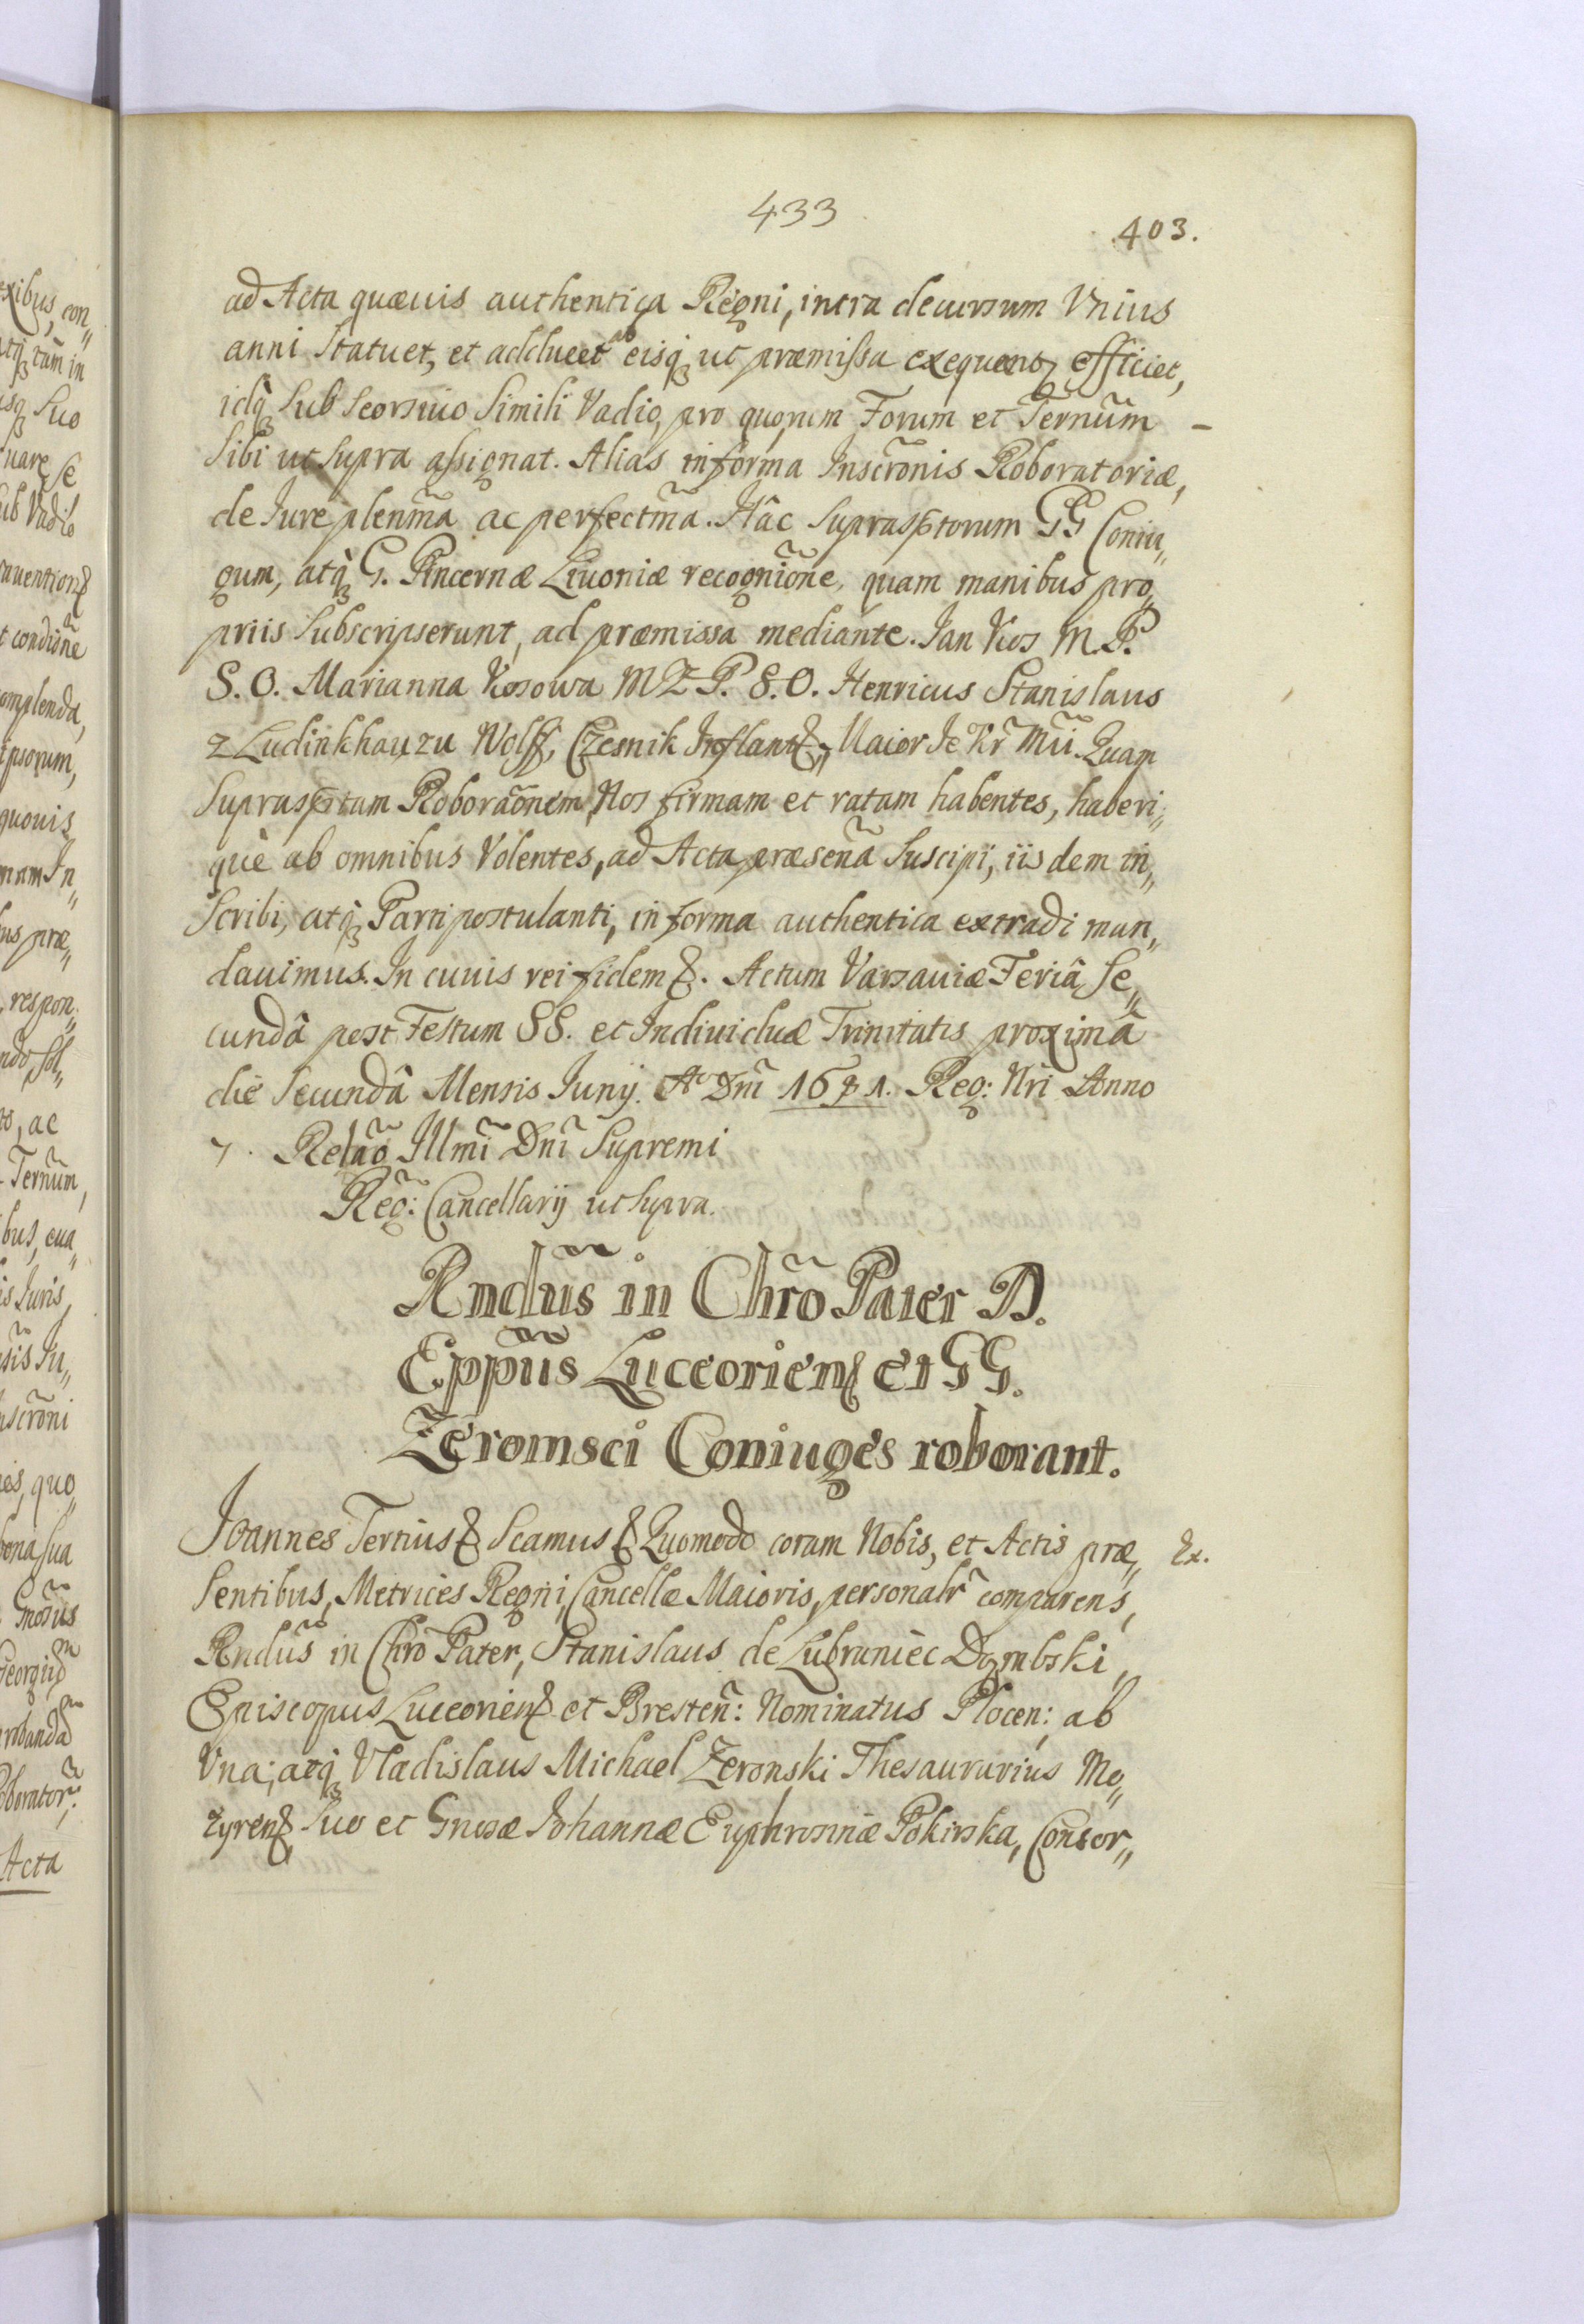 433
403.
ad Acta quævis authentica Regni, intra decursum Vnius
anni Statuet, et adducet ab eisq; ut præmissa exequent; efficiet,
idq; sub seorsivo simili Vadio, pro quorum Forum et Ternũm –
sibi ut supra assignat. Alias in forma Inscrõnis Roboratoriæ,
de Iure plenm̃a ac perfectm̃a. Hâc suprasptorum GG Coniu„
gum, atq; G. Pincernæ Livoniæ recognĩone, quam manibus pro„
priis subscripserunt, ad præmissa mediante. Jan Kos M. P.
S. O. Marianna Kosowa MZP. S. O. Henricus Stanislaus
z Ludinkhauzu Wolff, Czesnik Inflant: Maior Je Kr̃ Mći. Quam
suprasptam Roborãonem, Nos firmam et ratam habentes, haberi„
què ab omnibus Volentes, ad Acta præsenã suscipi, iisdem in„
scribi, atq; Parti postulanti, in forma authentica extradi man„
davimus. In cuius rei fidem &. Actum Varsaviæ Feriâ se„
cundâ post Festum SS. et Individuæ Trinitatis proximâ
die secundâ Mensis Iunij. Aº Dnĩ 1681. Reg: Nri Anno
7. Relaõ Illmĩ Dnĩ Supremi
Reg: Cancellarij ut supra.
Rndũs in Chrõ Pater D.
Eppũs Luceorien: et GG.
Zeromsci Coniuges roborant.
Joannes Tertius & Scamus & Quomodo coram Nobis, et Actis præ„ Ex.
sentibus, Metrices Regni, Cancellæ Maioris, personalr̃ comparens,
Rndũs in Chrõ Pater, Stanislaus de Lubraniec Dombski,
Episcopus Luceorien: et Bresten̄: Nominatus Plocen: ab
Vna; atq; Vladislaus Michael Zeromski Thesaurarius Mo„
zyren: suo et Gnosæ Johannæ Euphrosinæ Pokirska, Consor„